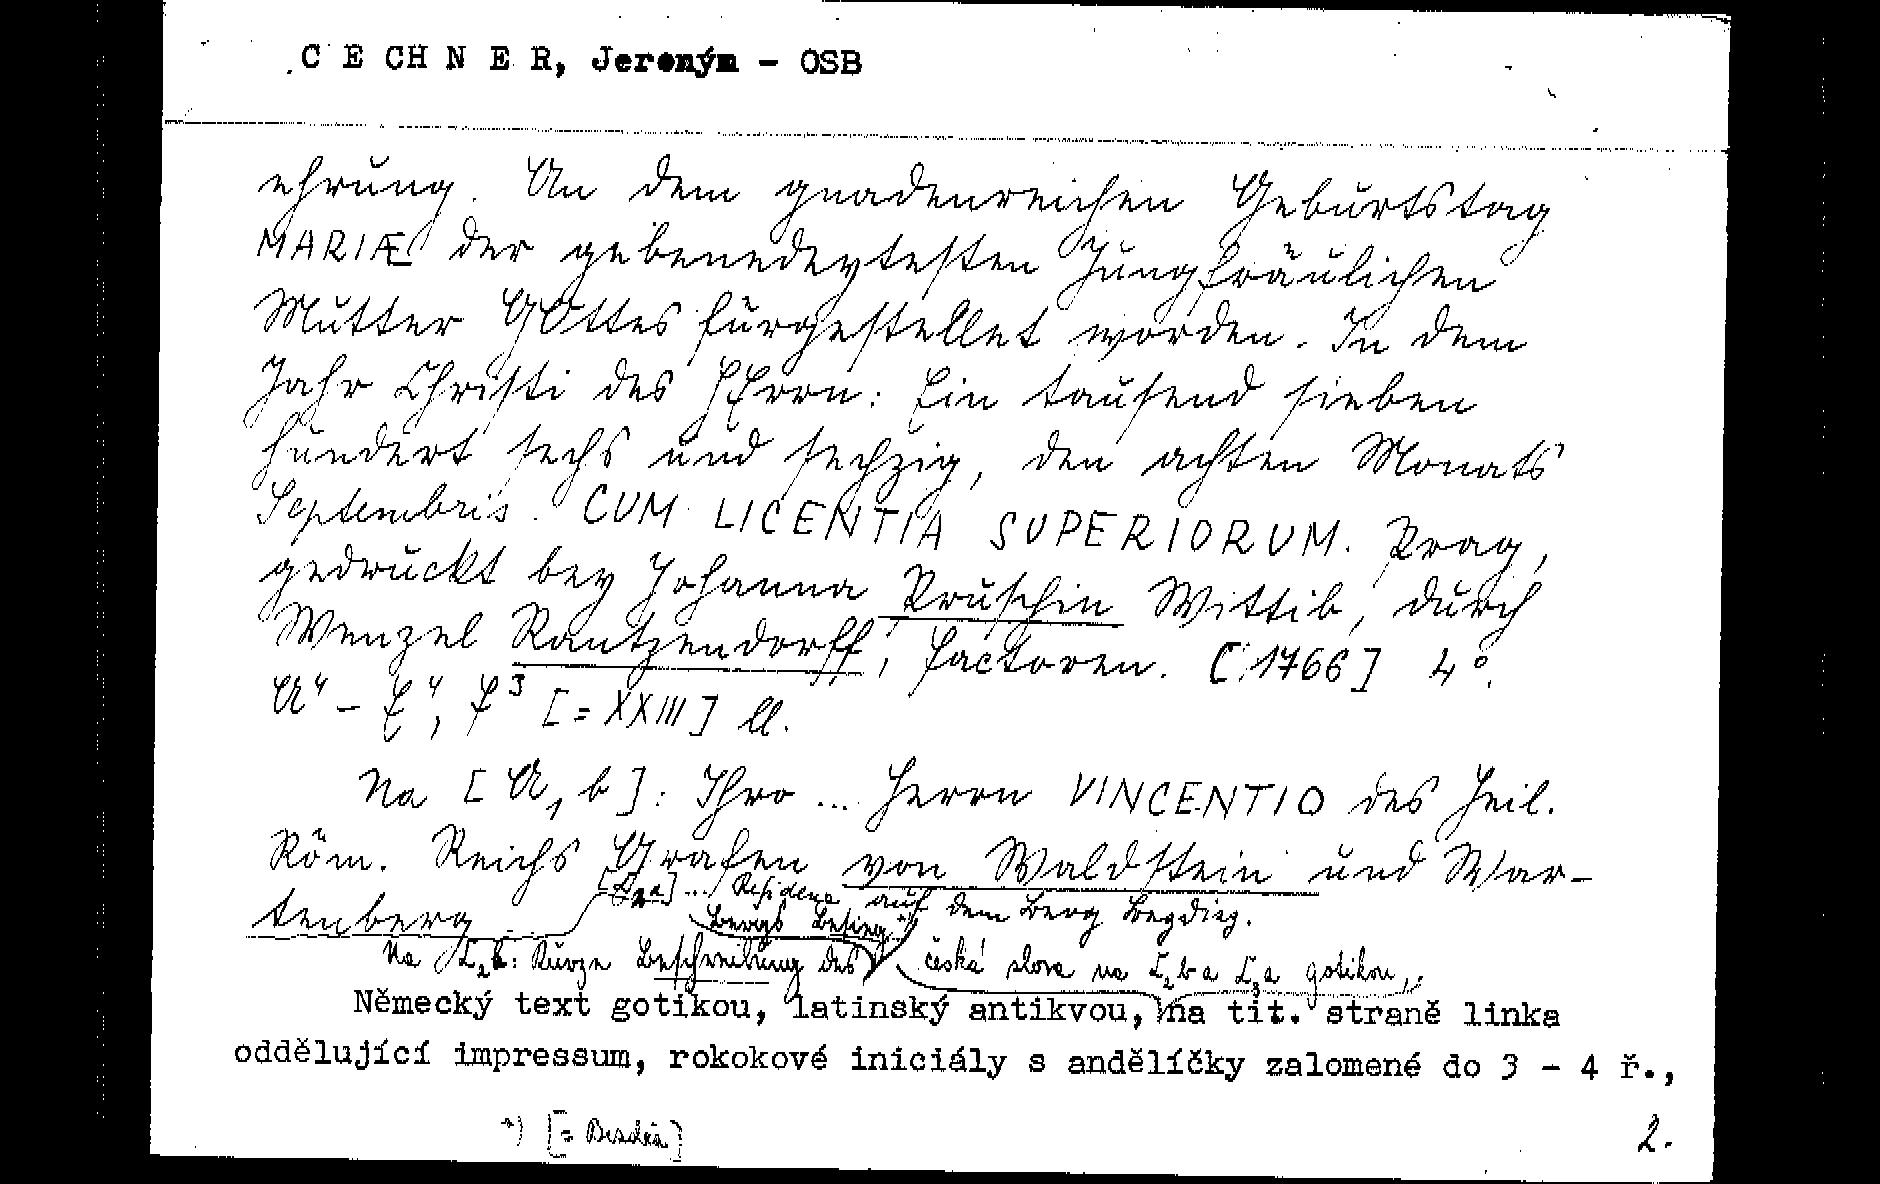 CECHNER, Jeroným - OSB
ehrung. An dem gnadenreichen Geburtstag
MARIÆ der gebenedeytesten Jungfräulichen
Mutter GOttes fürgestellet worden. In dem
Jahr Christi des HErrn: Ein tausend sieben
hundert sechs und sechzig, den achten Monats
Septembris. CUM LICENTIA SUPERIORUM. Prag,
gedruckt bey Johanna Pruschin Wittib, durch
Wenzel Rantzendorff, Factoren. [1766] 4°.
A⁴ – E⁴, F³ [= XXIII] ll.
Na [A₁b]: Ihro ... Herrn VINCENTIO des Heil.
Röm. Reichs Grafen von Waldstein und War-
tenberg [ ₂a] ... Residenz auf dem Berg Begdieg.
Na ₂b: Kurze Beschreibung des Bergs Besieg *)
česká slova na ₂b a ₃a gotikou,
Německý text gotikou, latinský antikvou, na tit. straně linka
oddělující impressum, rokokové iniciály s andělíčky zalomené do 3 - 4 ř.,
*) [= Bezděz]
2.